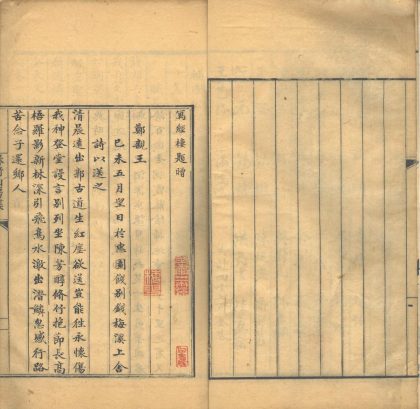 寫經樓題贈
鄭親王
己未五月望日於惠園餞別錢梅溪上舍
詩以送之
清晨遠出郭古道生紅塵欲送豈能往永懷傷
我神登堂謾言別列坐陳芳醇脩竹抱節長高
梧羅影新林深引飛鳥水激出潛鱗悤悤行路
苦念子還鄉人